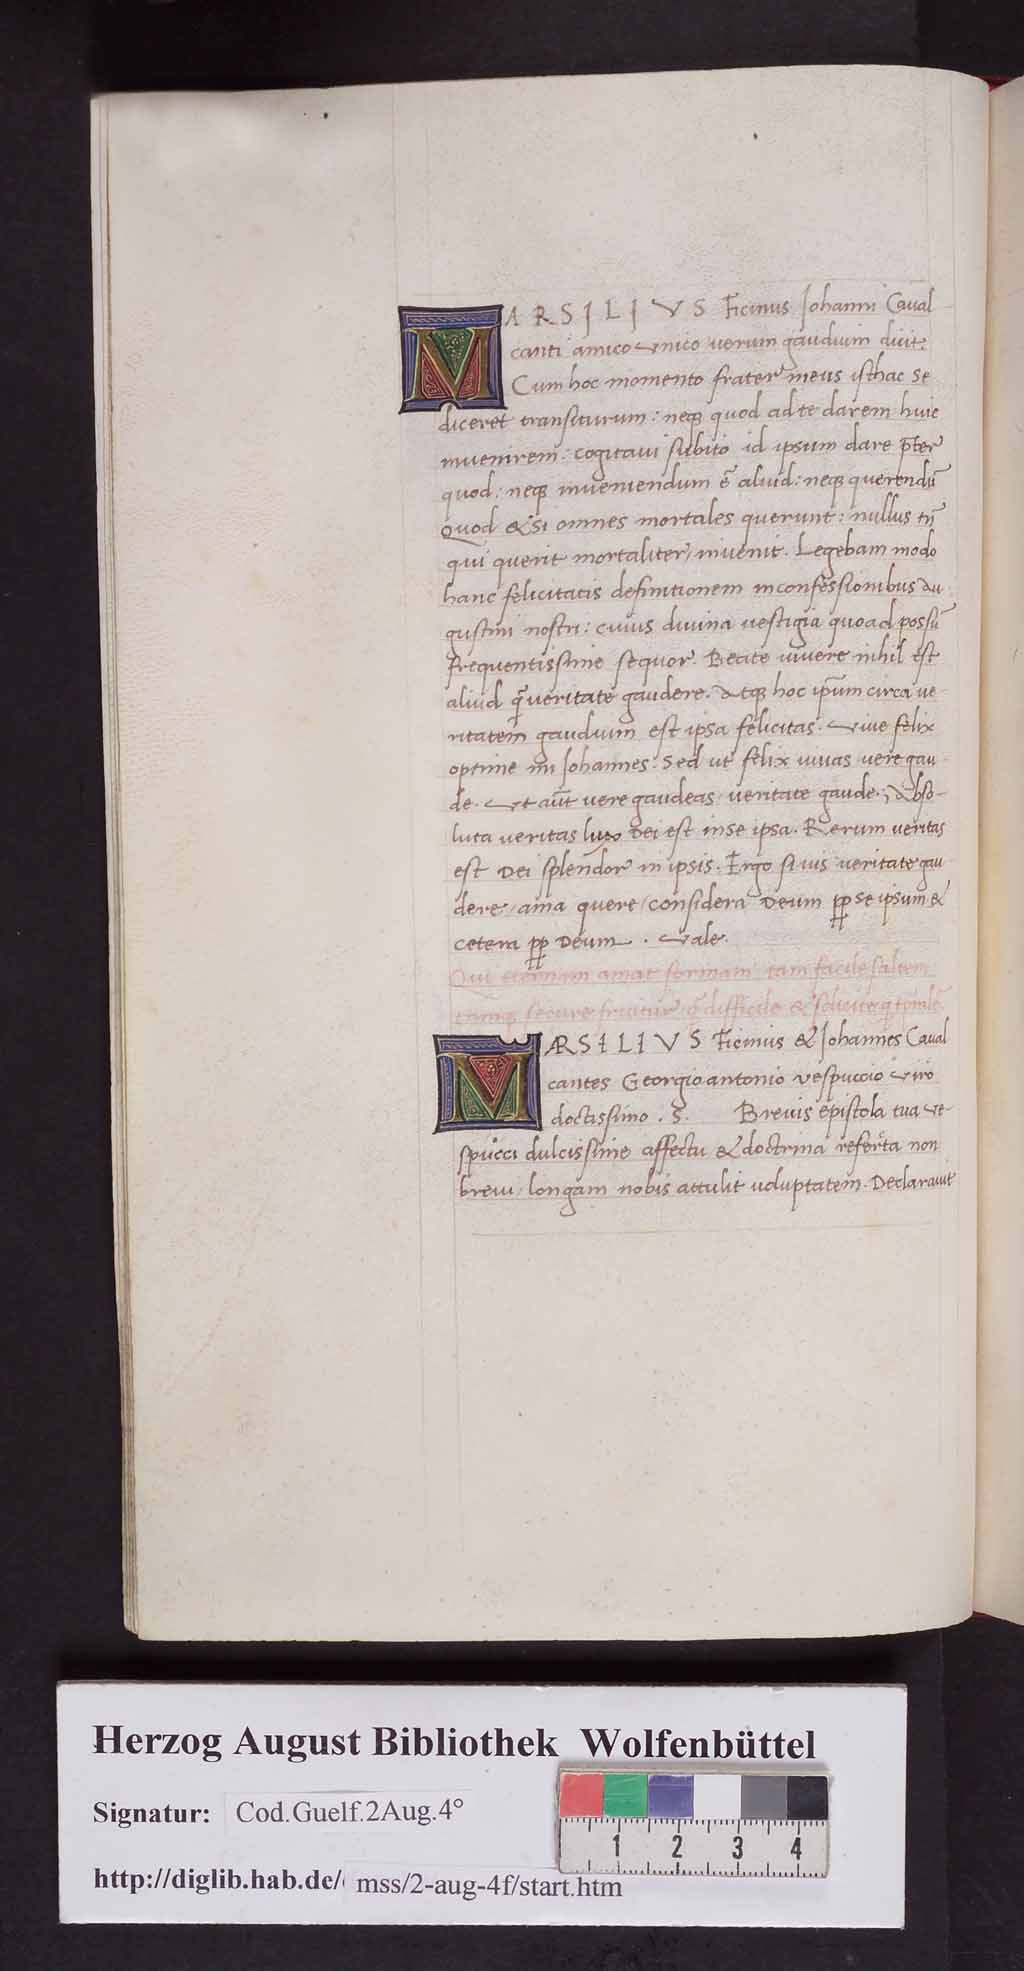 MARSILIVS Ficinus Johanni Caual
canti amico vnico verum gaudium dicit.
Cum hoc momento frater meus isthac se
diceret transiturum: neq; quod ad te darem huic
inuenirem: cogitaui subito id ipsum dare p̄ter
quod: neq; inueniendum ē aliud: neq; querendū
Quod & si omnes mortales querunt: nullus tn̄
qui querit mortaliter, inuenit. Legebam modo
hanc felicitatis definitionem in confessionibus Au
gustini nostri: cuius diuina vestigia quoad possū
frequentissime sequor. Beate viuere nihil est
aliud q̄ veritate gaudere. Atq; hoc ip̄um circa ve
ritatem gaudium est ipsa felicitas. Viue felix
optime mi Johannes. Sed ut felix viuas vere gau
de. Vt aūt vere gaudeas veritate gaude. Abso-
luta veritas Dei est in se ipsa. Rerum veritas
est Dei splendor in ipsis. Ergo si uis veritate gau
dere, ama quere, considera Deum pp se ipsum &
cetera pp Deum. Vale.
Qui eternam amat formam tam facile saltem
tamq; secure fruitur q̄ difficile & solicite
MARSILIVS Ficinus & Johannes Caual
cantes Georgio antonio vespuccio viro
doctissimo . S. Breuis epistola tua ve-
spucci dulcissime affectu & doctrina referta non
breui, longam nobis attulit uoluptatem. Declarauit
Herzog August Bibliothek Wolfenbüttel
Signatur: Cod.Guelf.2Aug.4°
http://diglib.hab.de/ mss/2-aug-4f/start.htm
1 2 3 4